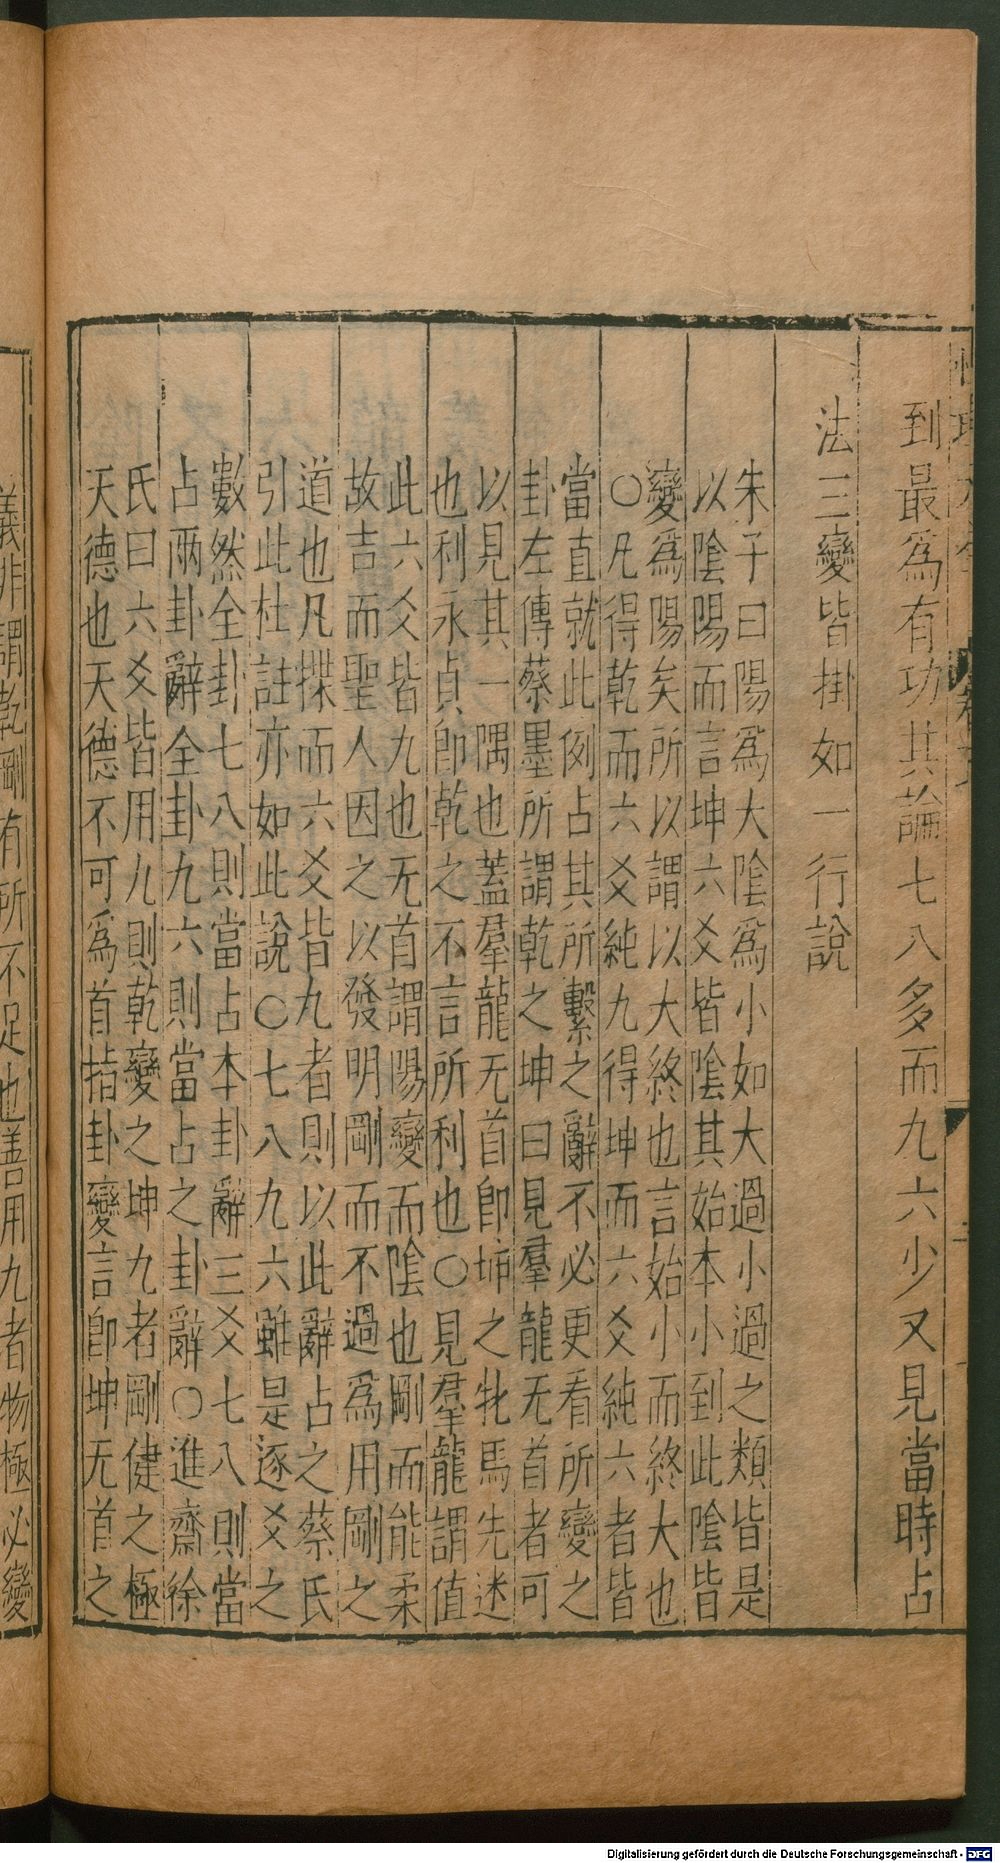 到最爲有功其論七八多而九六少又見當時占
法三變皆掛如一行說
朱子曰陽爲大陰爲小如大過小過之類皆是
以陰陽而言坤六爻皆陰其始本小到此陰皆
變爲陽矣所以謂以大終也言始小而終大也
○凡得乾而六爻純九得坤而六爻純六者皆
當直就此例占其所繫之辭不必更看所變之
卦左傳蔡墨所謂乾之坤曰見羣龍无首者可
以見其一隅也蓋羣龍无首卽坤之牝馬先迷
也利永貞卽乾之不言所利也○見羣龍謂值
此六爻皆九也无首謂陽變而陰也剛而能柔
故吉而聖人因之以發明剛而不過爲用剛之
道也凡揲而六爻皆九者則以此辭占之蔡氏
引此杜註亦如此說○七八九六雖是逐爻之
數然全卦七八則當占本卦辭三爻七八則當
占兩卦辭全卦九六則當占之卦辭○進齋徐
氏曰六爻皆用九則乾變之坤九者剛健之極
天德也天德不可爲首指卦變言卽坤无首之
義非謂乾剛有所不足也善用九者物極必變
Digitalisierung gefördert durch die Deutsche Forschungsgemeinschaft - DFG